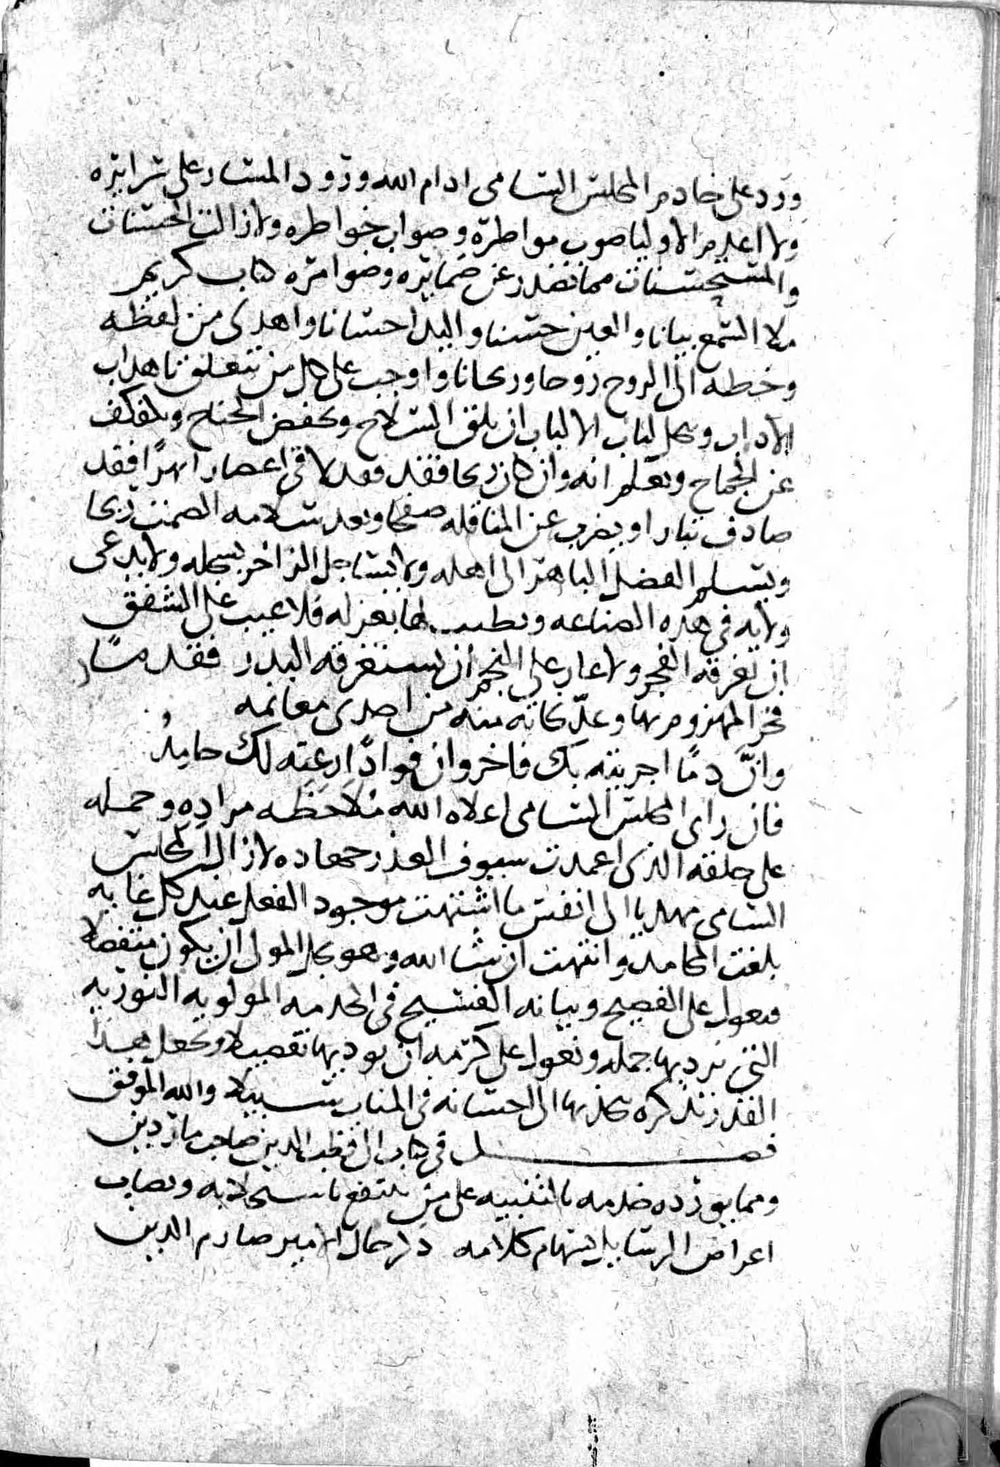 ورد على خادم المجلس السامي ادام الله ورود المسار على سرايره
ولا اعدم الاوليا صوب مواطره وصواب خواطره ولا زالت الحسنات
والمستحسنات مما تصدر عن ضمايره وضوامره كتاب كريم
ملا السمع بيانا والعين حسنا واليد احسانا واهدى من لفظه
وخطه الى الروح روحا وريحانا واوجب على كل من تتعلق باهداب
الاداب وتحلى لباب الالباب ان يلقى السلاح ويخفض الجناح ويكفكف
عن الجماح ويعلم انه وان كان ريحا فقد لاقى اعصارا نهرا فقد
صادف تيارا ويضرب عن المناقله صفحا ويعد سلامه الصمت ربحا
ويسلم الفضل الباهر الى اهله ولا يساجل الزاخر بسجله ولا يدعي
ولايه في هذه الصناعه وخطيبها بعزله فلا عيب على الشفق
ان تفرقه الفجر ولا عار على النجم ان يستغرقه البدر فقد سار
فخر المهزوم بها وعد نجاته منه من احدى مغانمه
وانّ دمًا اجريته بك فاخر وان فوادًا رعته لك حامدُ
فان راى المجلس السامي اعلاه الله ملاحظه مراده وحمله
على خلقه الذي اغمدت سيوف العذر جعل لازال المجلس
السامي مهديا الى انفس ما اشتهت موجود الفعل عند كل غايه
بلغت المحامد وانتهت ان شا الله وهو يجل المولى ان يكون متفضلا
فيعول على الفصيح وبيانه الفسيح في الخدمه المولويه النوريه
التي يرديها جمله ونعول على كرمه ان يوديها تفصيلا ويجعل هذا
القدر تذكره يجد بها الى احسانه في المناب سبيلا والله الموفق
فصل في كتاب الى قطب الدين صاحب ماردين
ومما يورده خدمه بالتنبيه على من ينتفع باستخلابه ويصاب
اغراض الرسايل بسهام كلامه ذكر حال الامير صارم الدين